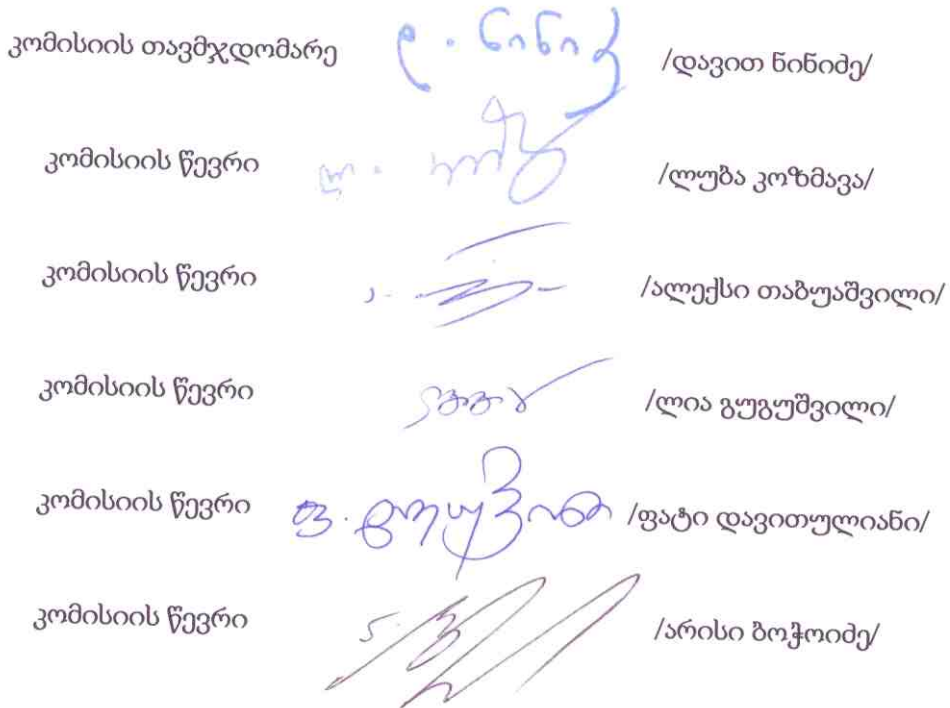 კომისიის თავმჯდომარე დ. ნინიძე /დავით ნინიძე/
კომისიის წევრი /ლუბა კოზმავა/
კომისიის წევრი /ალექსი თაბუაშვილი/
კომისიის წევრი /ლია გუგუშვილი/
კომისიის წევრი /ფატი დავითულიანი/
კომისიის წევრი /არისი ბოჭოიძე/